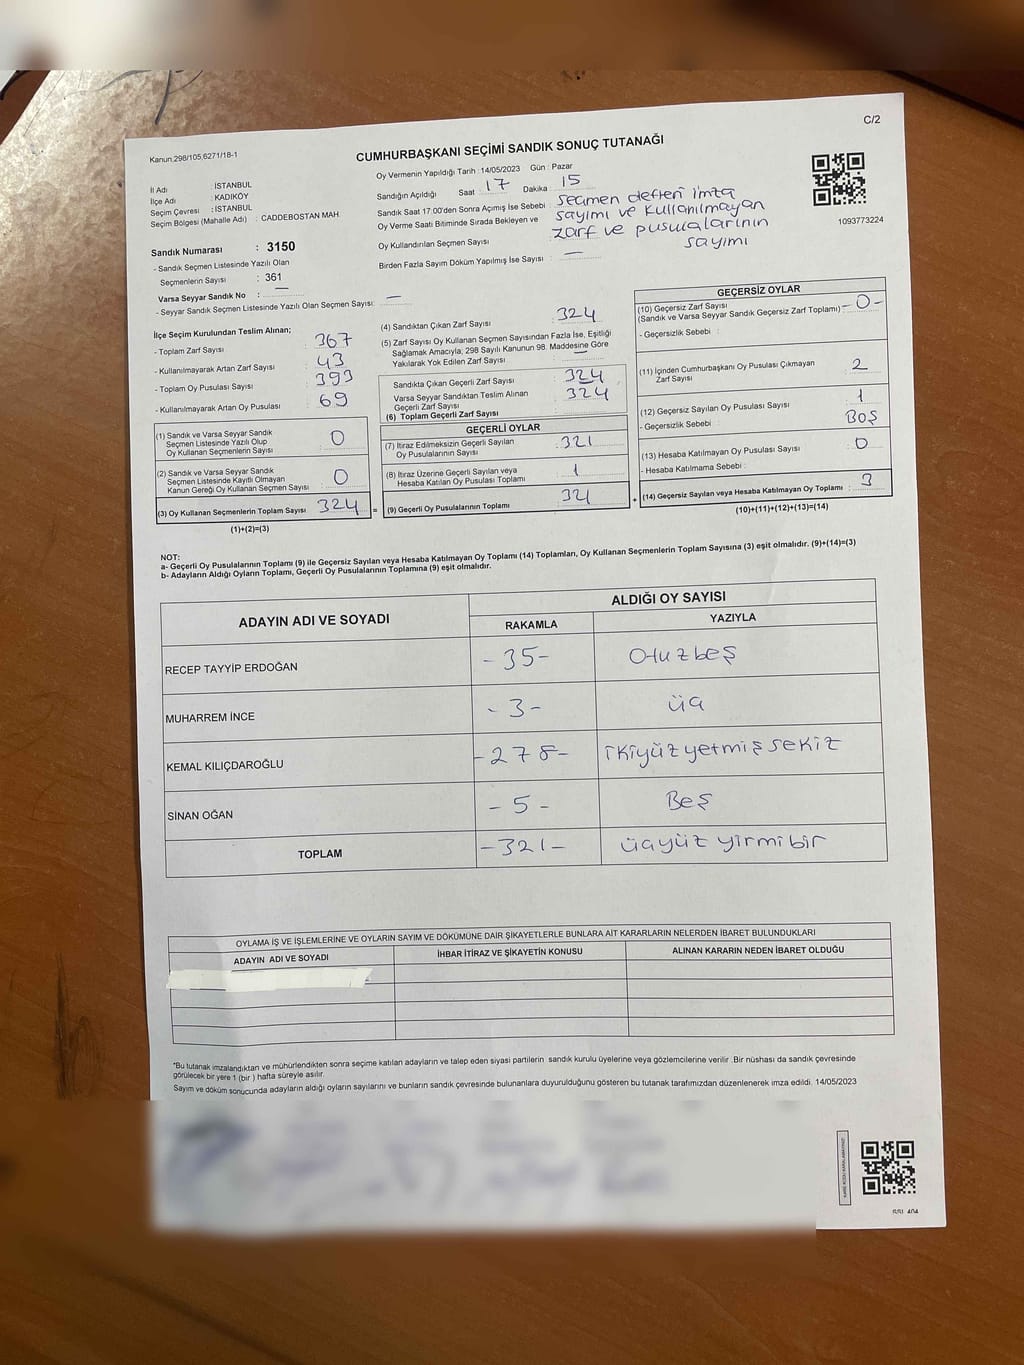 C/2
Kanun 298/105,6271/18-1
CUMHURBAŞKANI SEÇİMİ SANDIK SONUÇ TUTANAĞI
İl Adı : İSTANBUL
İlçe Adı : KADIKÖY
Seçim Çevresi : İSTANBUL
Seçim Bölgesi (Mahalle Adı) : CADDEBOSTAN MAH.
Sandık Numarası : 3150
- Sandık Seçmen Listesinde Yazılı Olan
Seçmenlerin Sayısı : 361
Varsa Seyyar Sandık No : —
- Seyyar Sandık Seçmen Listesinde Yazılı Olan Seçmen Sayısı: —
Oy Vermenin Yapıldığı Tarih : 14/05/2023 Gün : Pazar
Sandığın Açıldığı Saat 17 Dakika 15
Sandık Saat 17:00'den Sonra Açımış İse Sebebi : seçmen defteri imza
sayımı ve kullanılmayan
zarf ve pusulalarının
sayımı
Oy Verme Saati Bitiminde Sırada Bekleyen ve
Oy Kullandırılan Seçmen Sayısı
Birden Fazla Sayım Döküm Yapılmış İse Sayısı : —
1093773224
İlçe Seçim Kurulundan Teslim Alınan;
- Toplam Zarf Sayısı : 367
- Kullanılmayarak Artan Zarf Sayısı : 43
- Toplam Oy Pusulası Sayısı : 393
- Kullanılmayarak Artan Oy Pusulası : 69
(1) Sandık ve Varsa Seyyar Sandık
Seçmen Listesinde Yazılı Olup
Oy Kullanan Seçmenlerin Sayısı : 0
(2) Sandık ve Varsa Seyyar Sandık
Seçmen Listesinde Kayıtlı Olmayan
Kanun Gereği Oy Kullanan Seçmen Sayısı : 0
(3) Oy Kullanan Seçmenlerin Toplam Sayısı : 324
(1)+(2)=(3)
(4) Sandıktan Çıkan Zarf Sayısı : 324
(5) Zarf Sayısı Oy Kullanan Seçmen Sayısından Fazla İse, Eşitliği
Sağlamak Amacıyla; 298 Sayılı Kanunun 98. Maddesine Göre
Yakılarak Yok Edilen Zarf Sayısı : —
Sandıkta Çıkan Geçerli Zarf Sayısı : 324
Varsa Seyyar Sandıktan Teslim Alınan
Geçerli Zarf Sayısı : 324
(6) Toplam Geçerli Zarf Sayısı
GEÇERLİ OYLAR
(7) İtiraz Edilmeksizin Geçerli Sayılan
Oy Pusulalarının Sayısı : 321
(8) İtiraz Üzerine Geçerli Sayılan veya
Hesaba Katılan Oy Pusulası Toplamı : 1
(9) Geçerli Oy Pusulalarının Toplamı : 321
=
+
GEÇERSİZ OYLAR
(10) Geçersiz Zarf Sayısı
(Sandık ve Varsa Seyyar Sandık Geçersiz Zarf Toplamı) : -0-
- Geçersizlik Sebebi :
(11) İçinden Cumhurbaşkanı Oy Pusulası Çıkmayan
Zarf Sayısı : 2
(12) Geçersiz Sayılan Oy Pusulası Sayısı : 1
- Geçersizlik Sebebi : BOŞ
(13) Hesaba Katılmayan Oy Pusulası Sayısı : 0
- Hesaba Katılmama Sebebi :
(14) Geçersiz Sayılan veya Hesaba Katılmayan Oy Toplamı : 3
(10)+(11)+(12)+(13)=(14)
NOT:
a- Geçerli Oy Pusulalarının Toplamı (9) ile Geçersiz Sayılan veya Hesaba Katılmayan Oy Toplamı (14) Toplamları, Oy Kullanan Seçmenlerin Toplam Sayısına (3) eşit olmalıdır. (9)+(14)=(3)
b- Adayların Aldığı Oyların Toplamı, Geçerli Oy Pusulalarının Toplamına (9) eşit olmalıdır.
ADAYIN ADI VE SOYADI
ALDIĞI OY SAYISI
RAKAMLA YAZIYLA
RECEP TAYYİP ERDOĞAN -35- Otuzbeş
MUHARREM İNCE -3- üç
KEMAL KILIÇDAROĞLU -278- ikiyüzyetmişsekiz
SİNAN OĞAN -5- Beş
TOPLAM -321- üçyüz yirmibir
OYLAMA İŞ VE İŞLEMLERİNE VE OYLARIN SAYIM VE DÖKÜMÜNE DAİR ŞİKAYETLERLE BUNLARA AİT KARARLARIN NELERDEN İBARET BULUNDUKLARI
ADAYIN ADI VE SOYADI İHBAR İTİRAZ VE ŞİKAYETİN KONUSU ALINAN KARARIN NEDEN İBARET OLDUĞU
*Bu tutanak imzalandıktan ve mühürlendikten sonra seçime katılan adayların ve talep eden siyasi partilerin sandık kurulu üyelerine veya gözlemcilerine verilir. Bir nüshası da sandık çevresinde
görülecek bir yere 1 (bir) hafta süreyle asılır.
Sayım ve döküm sonucunda adayların aldığı oyların sayılarını ve bunların sandık çevresinde bulunanlara duyurulduğunu gösteren bu tutanak tarafımızdan düzenlenerek imza edildi. 14/05/2023